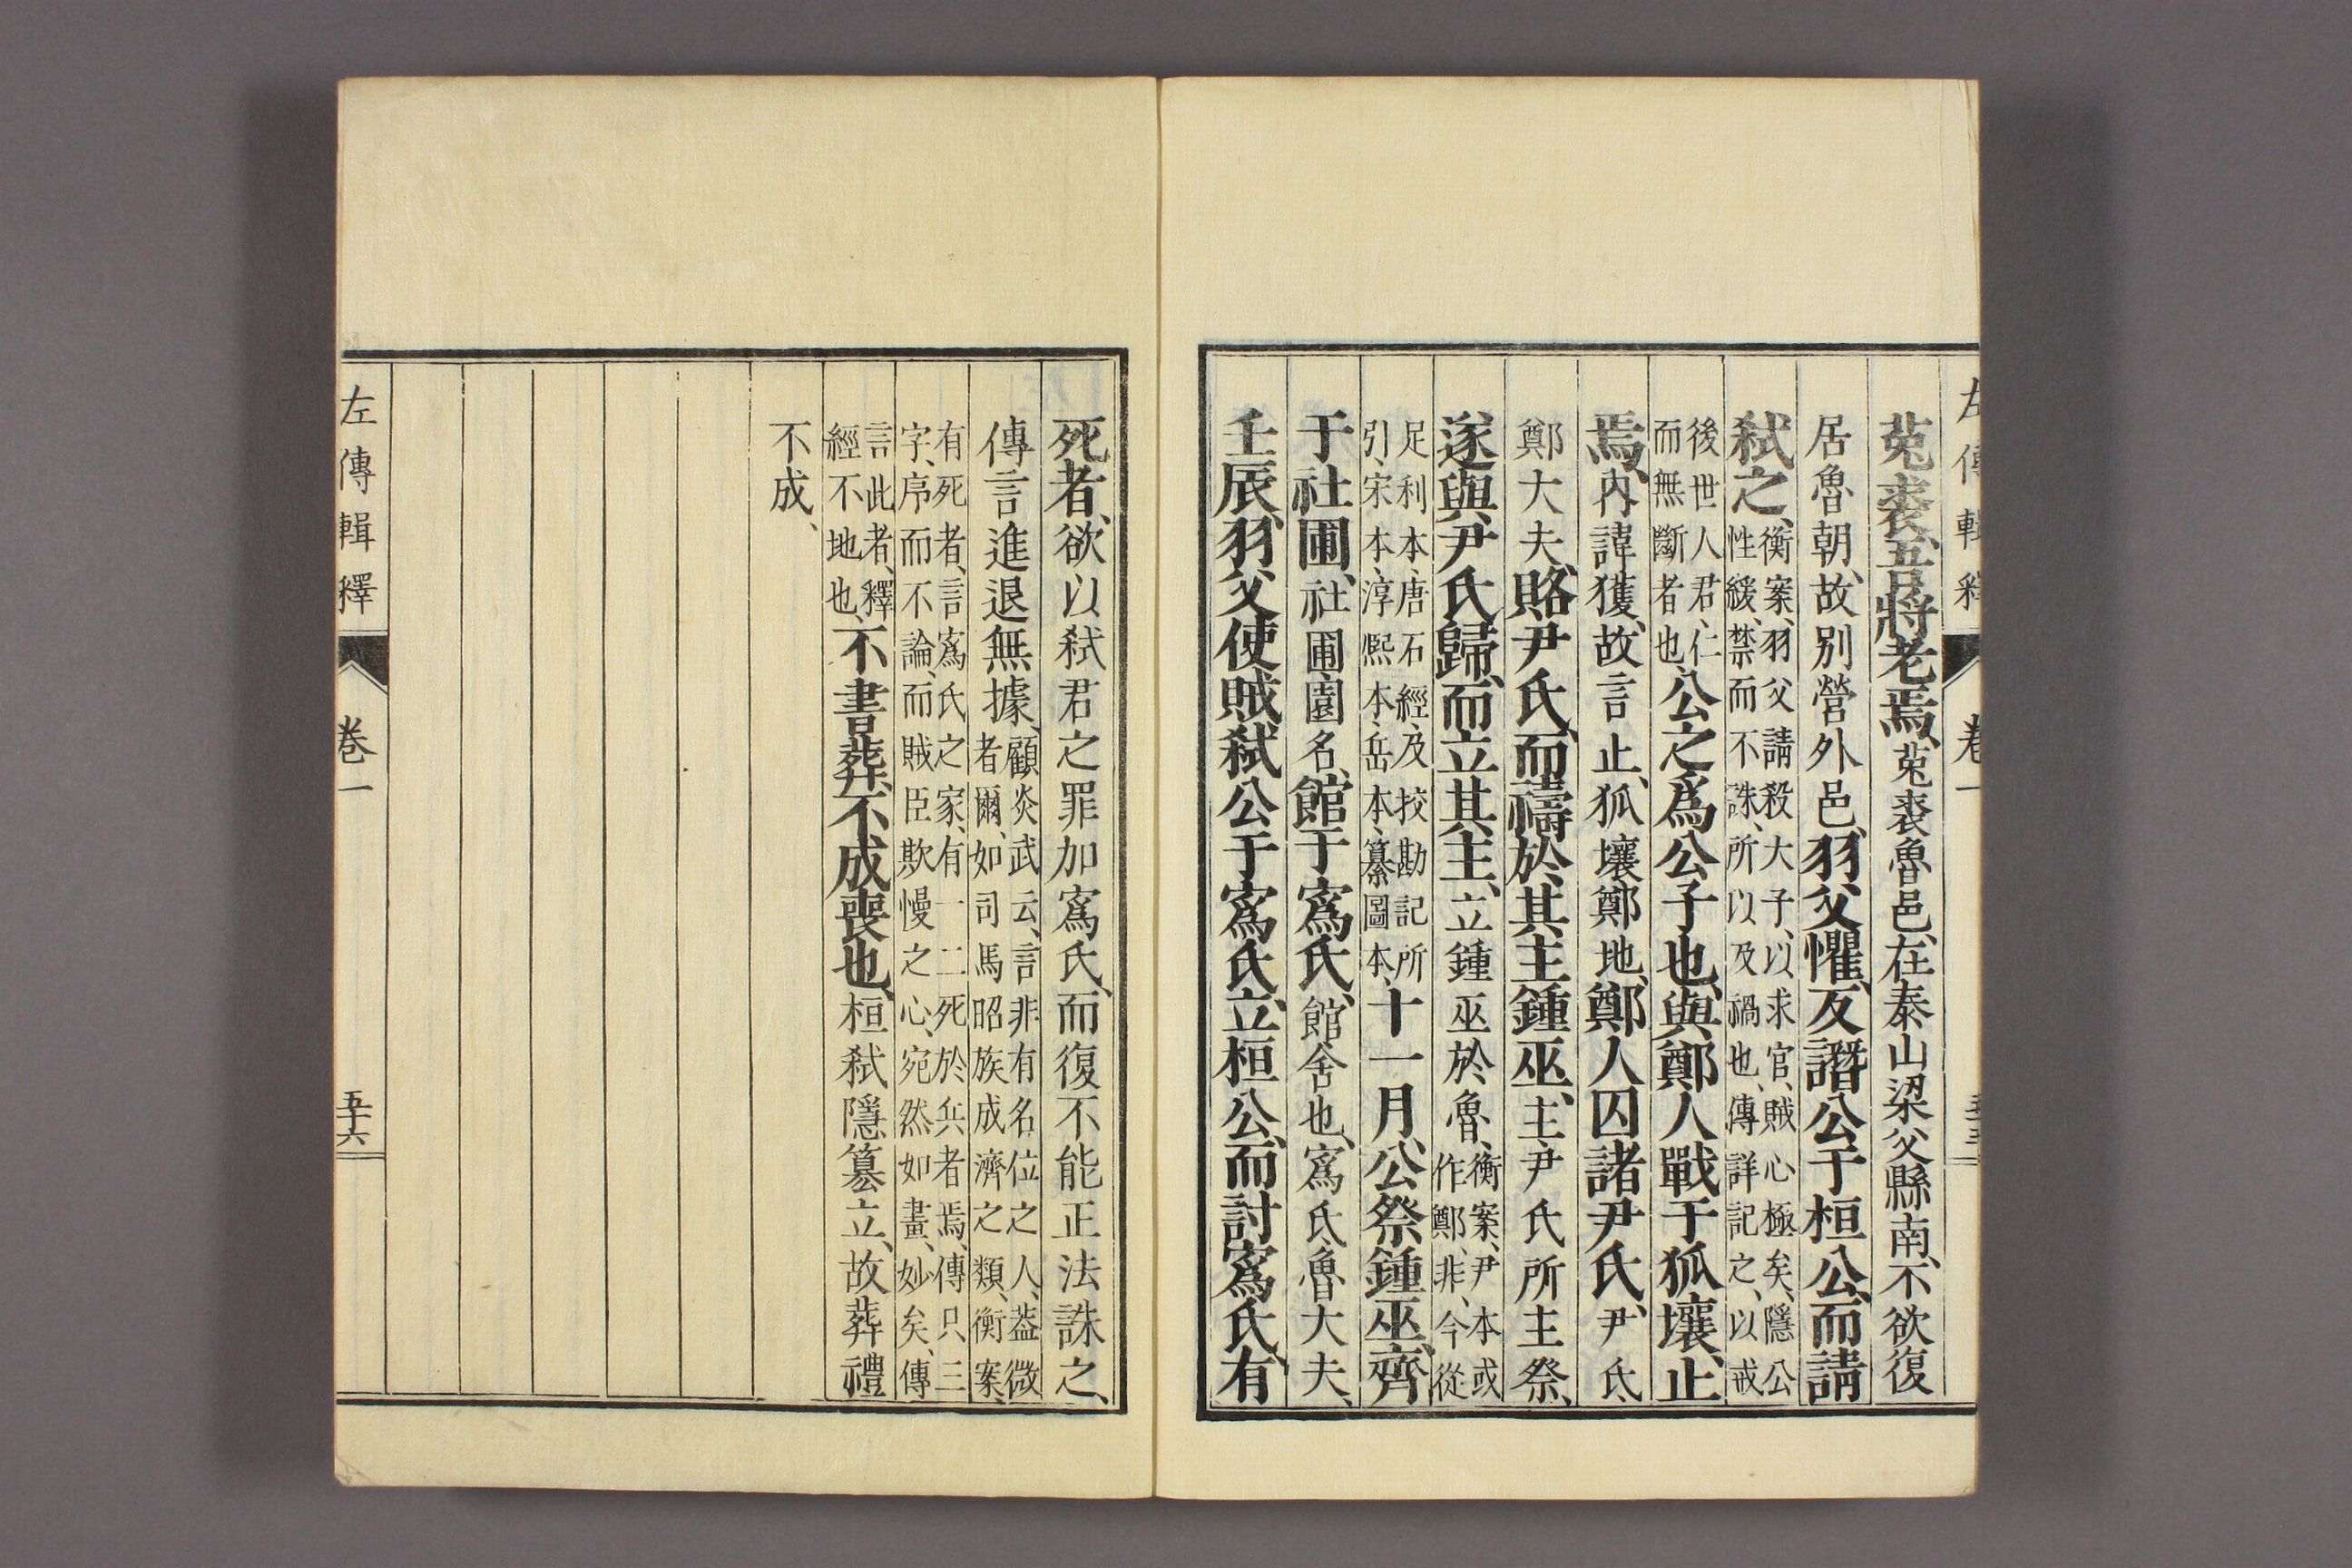 左傳輯釋 卷一
菟裘、吾將老焉、菟裘魯邑、在泰山梁父縣南、不欲復
居魯朝、故別營外邑、羽父懼、反譖公于桓公、而請
弒之、
衡案、羽父請殺大子、以求官、賊心極矣、隱公
性緩、禁而不誅、所以及禍也、傳詳記之、以戒
後世人君、仁
而無斷者也、
公之爲公子也、與鄭人戰于狐壤、止
焉、內諱獲、故言止、狐壤鄭地、鄭人囚諸尹氏、尹氏、
鄭大夫、賂尹氏、而禱於其主鍾巫、主尹氏所主祭、
遂與尹氏歸、而立其主、立鍾巫於魯、
衡案、尹本或
作鄭、非、今從
足利本、唐石經、及挍勘記所
引、宋本、淳熙本、岳本、纂圖本、
十一月、公祭鍾巫、齊
于社圃、社圃園名、館于寪氏、館舍也、寪氏魯大夫、
壬辰、羽父使賊弒公于寪氏、立桓公、而討寪氏、有
死者、欲以弒君之罪加寪氏、而復不能正法誅之、
傳言進退無據、
顧炎武云、言非有名位之人、葢微
者爾、如司馬昭族成濟之類、衡案、
有死者、言寪氏之家、有一二死於兵者焉、傳只三
字、序而不論、而賊臣欺慢之心、宛然如畫、妙矣、傳
言此者、釋
經不地也、
不書葬、不成喪也、桓弒隱篡立、故葬禮
不成、
左傳輯釋 卷一 五十六